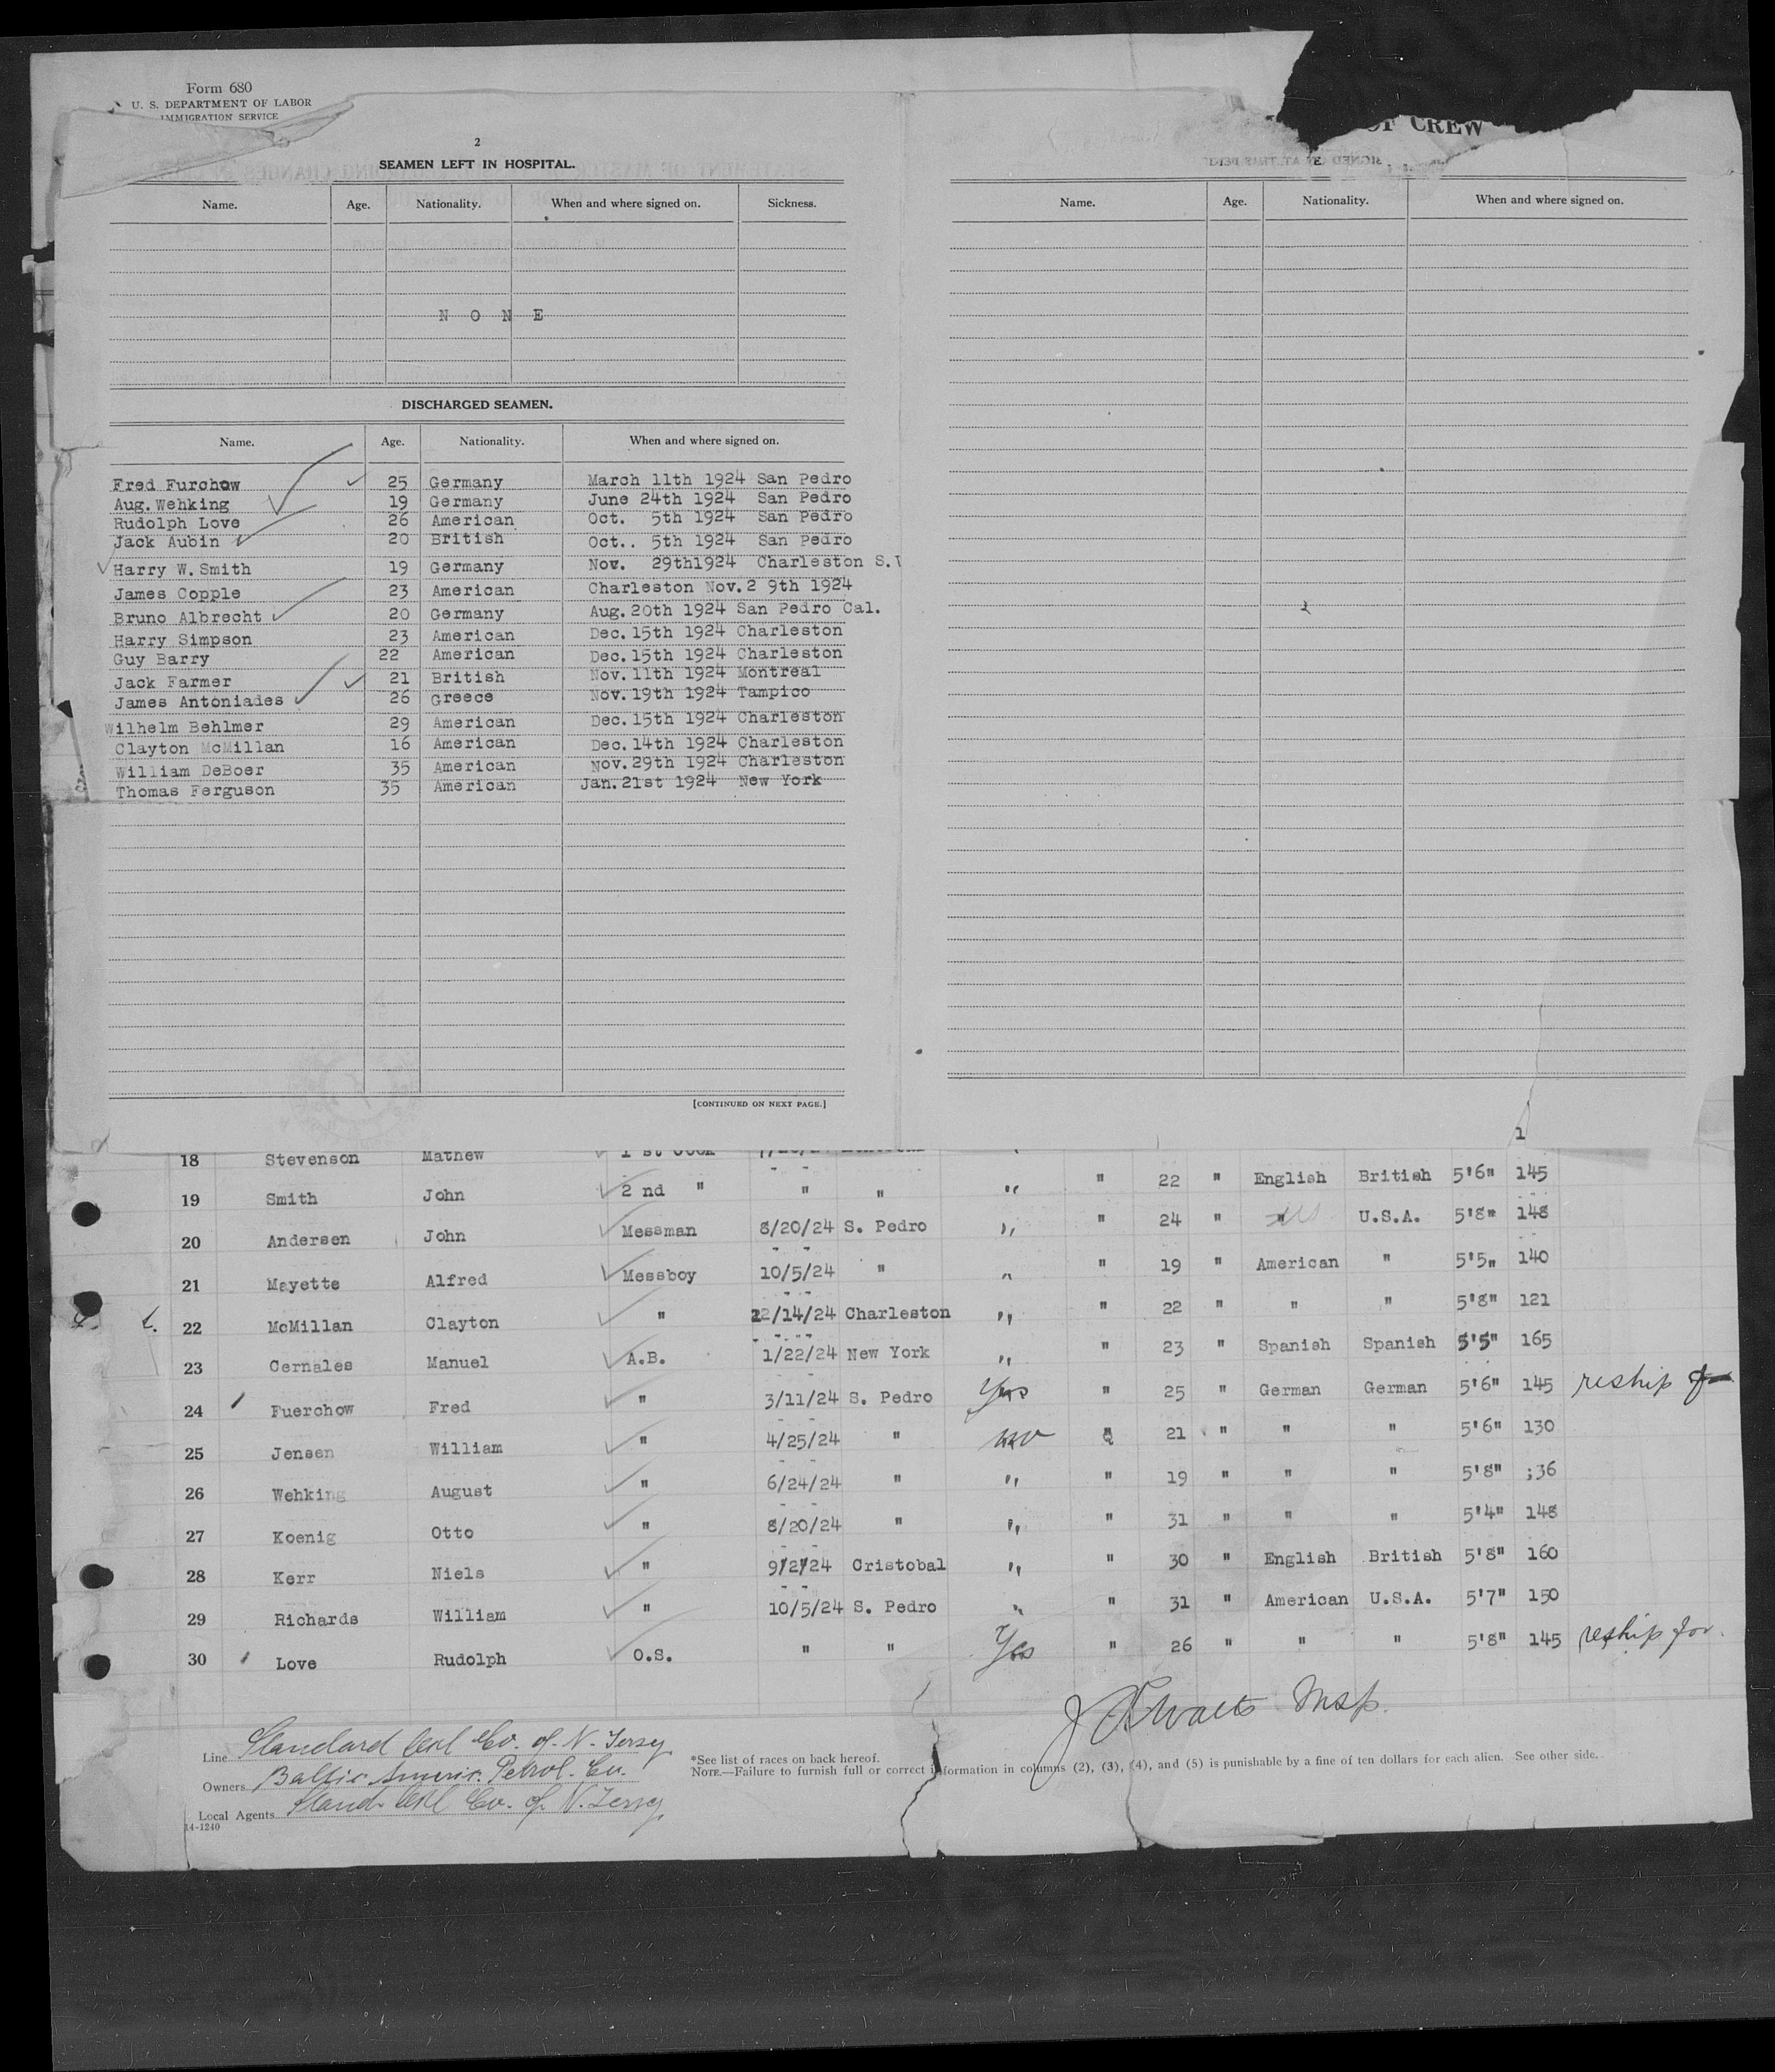 Form 680
U. S. DEPARTMENT OF LABOR
IMMIGRATION SERVICE
2
SEAMEN LEFT IN HOSPITAL.
Name. Age. Nationality. When and where signed on. Sickness.
N O N E
DISCHARGED SEAMEN.
Name. Age. Nationality. When and where signed on.
Fred Furchow 25 Germany March 11th 1924 San Pedro
Aug. Wehking 19 Germany June 24th 1924 San Pedro
Rudolph Love 26 American Oct. 5th 1924 San Pedro
Jack Aubin 20 British Oct.. 5th 1924 San Pedro
Harry W. Smith 19 Germany Nov. 29th1924 Charleston S.
James Copple 23 American Charleston Nov.2 9th 1924
Bruno Albrecht 20 Germany Aug. 20th 1924 San Pedro Cal.
Harry Simpson 23 American Dec. 15th 1924 Charleston
Guy Barry 22 American Dec. 15th 1924 Charleston
Jack Farmer 21 British Nov. 11th 1924 Montreal
James Antoniades 26 Greece Nov. 19th 1924 Tampico
Wilhelm Behlmer 29 American Dec. 15th 1924 Charleston
Clayton McMillan 16 American Dec. 14th 1924 Charleston
William DeBoer 35 American Nov. 29th 1924 Charleston
Thomas Ferguson 35 American Jan. 21st 1924 New York
[CONTINUED ON NEXT PAGE.]
OF CREW
Name. Age. Nationality. When and where signed on.
1
18 Stevenson Mathew 1 st Cook
19 Smith John 2 nd " " " " " 22 " English British 5'6" 145
20 Andersen John Messman 8/20/24 S. Pedro " " 24 " " U.S.A. 5'8" 148
21 Mayette Alfred Messboy 10/5/24 " " " 19 " American " 5'5" 140
22 McMillan Clayton " 12/14/24 Charleston " " 22 " " " 5'8" 121
23 Cernales Manuel A.B. 1/22/24 New York " " 23 " Spanish Spanish 5'5" 165
24 Fuerchow Fred " 3/11/24 S. Pedro Yes " 25 " German German 5'6" 145 reship
25 Jensen William " 4/25/24 " no " 21 " " " 5'6" 130
26 Wehking August " 6/24/24 " " " 19 " " " 5'8" ;36
27 Koenig Otto " 8/20/24 " " " 31 " " " 5'4" 148
28 Kerr Niels " 9/2/24 Cristobal " " 30 " English British 5'8" 160
29 Richards William " 10/5/24 S. Pedro " " 31 " American U.S.A. 5'7" 150
30 Love Rudolph O.S. " " Yes " 26 " " " 5'8" 145 reship for.
Insp.
Line Standard Oil Co. of N. Jersy
Owners Baltic Americ. Petrol. Co.
Local Agents Stand. Oil Co. of N. Jersy
14-1240
*See list of races on back hereof.
NOTE.—Failure to furnish full or correct information in columns (2), (3), (4), and (5) is punishable by a fine of ten dollars for each alien. See other side.